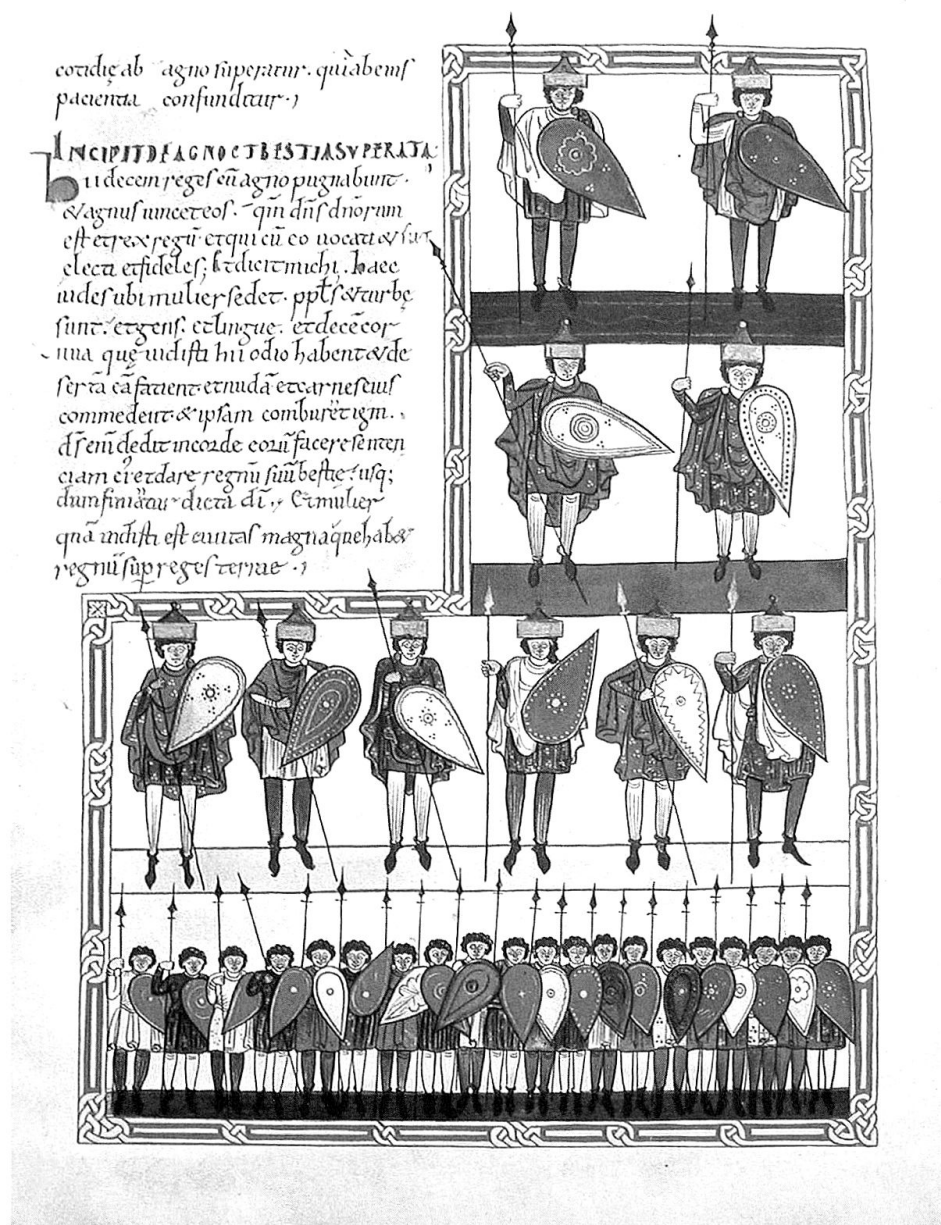 cotidię ab agno superatur. quia beius
paciencia confunditur.
INCIPIT DE AGNO ET BESTIA SUPERATA
hii decem reges cū agno pugnabunt.
& agnus uincet eos. qm̄ dn̄s dn̄orum
est et rex regū. et qui cū eo uocati & sunt
electi et fideles; Et dicit michi. haec
uides ubi mulier sedet. ppl̄s & turbę
sunt. et gens. et lingue. et decē cor
nua quę uidisti hii odio habent & de
serta eā facient et nudā et carnes eius
commedent. & ipsam comburēt igni.
dn̄s enī dedit in corde eorū facere senten
ciam et dare regnū suū bestię usq;
dum finiātur dicta dī. Et mulier
quā uidisti est ciuitas magna que hab&
regnū sup reges terrae.